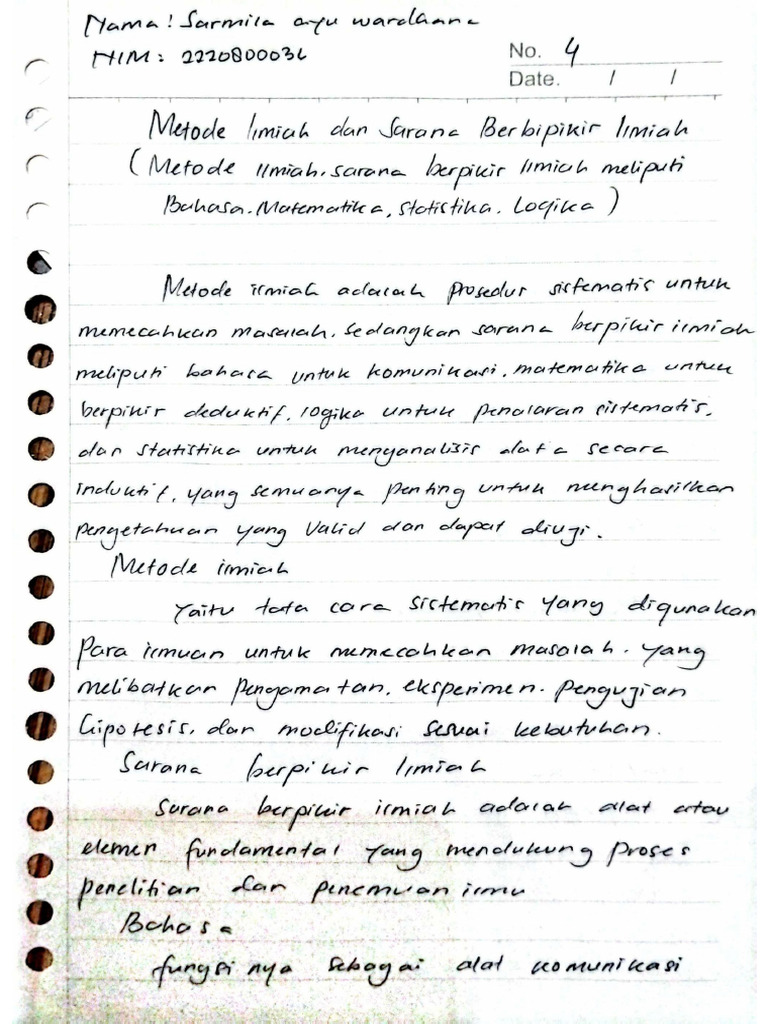 Nama: Sarmila ayu wardhana
NIM: 2220800036
No. 4
Date. / /
Metode Ilmiah dan Sarana Berbipikir Ilmiah
(Metode Ilmiah, sarana berpikir Ilmiah meliputi
Bahasa, Matematika, Statistika, Logika)
Metode ilmiah adalah prosedur sistematis untuk
memecahkan masalah, sedangkan sarana berpikir ilmiah
meliputi bahasa untuk komunikasi, matematika untuk
berpikir deduktif, logika untuk penalaran sistematis,
dan statistika untuk menganalisis data secara
induktif, yang semuanya penting untuk menghasilkan
pengetahuan yang valid dan dapat diuji.
Metode ilmiah
Yaitu tata cara sistematis yang digunakan
Para ilmuan untuk memecahkan masalah, yang
melibatkan pengamatan, eksperimen, pengujian
hipotesis, dan modifikasi sesuai kebutuhan.
Sarana berpikir Ilmiah
Sarana berpikir ilmiah adalah alat atau
elemen fundamental yang mendukung proses
penelitian dan penemuan ilmu
Bahasa
fungsi nya sebagai alat komunikasi